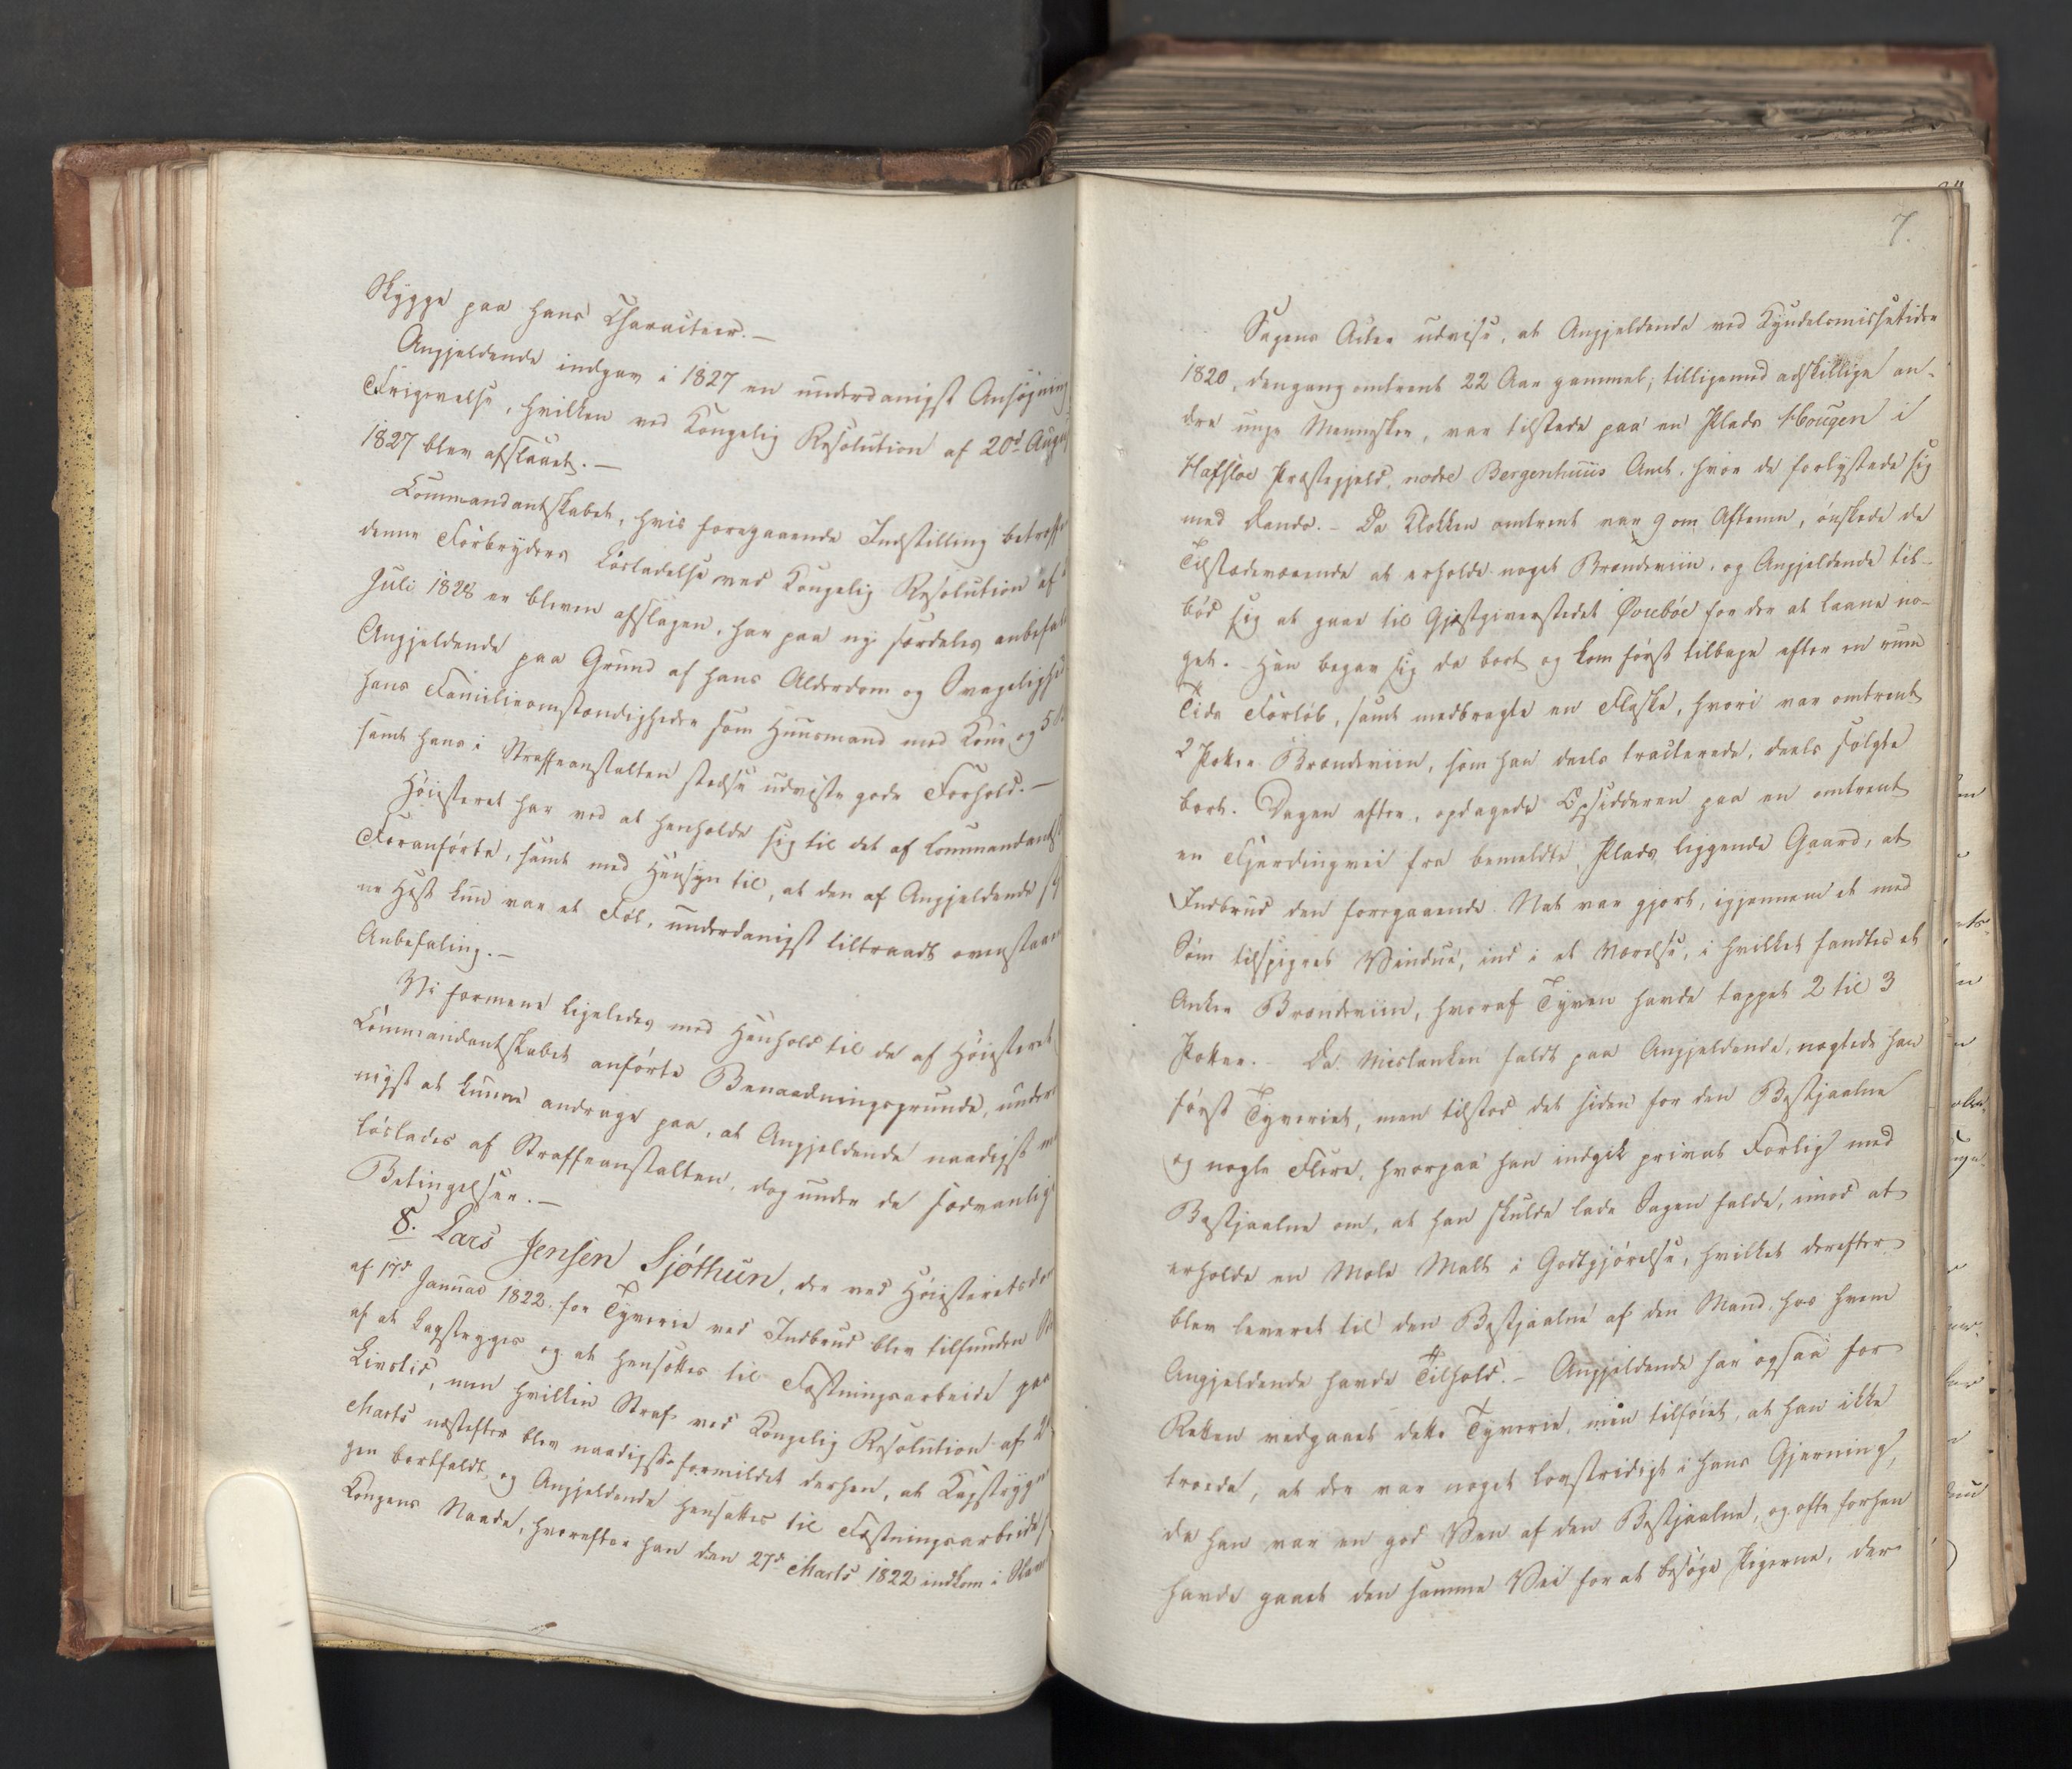 Skygge paa hans Characteer. —
Angjeldende indgav i 1827 en underdanigst Ansøgning
Frigivelse, hvilken ved Kongelig Resolution af 20d Augu
1827 blev afslaaet. —
Commandantskabet, hvis foregaaende Indstilling betreff
denne Forbryders Løsladelse ved Kongelig Resolution af
Juli 1828 er bleven afslagen, har paa nye særdeles anbefal
Angjeldende paa Grund af hans Alderdom og Svagelighe
hans Familieomstændigheder som Huusmand med Kone og 5
samt hans i Straffeanstalten stedse udviste gode Forhold. —
Høiesteret har ved at henholde sig til det af Commandants
Foranførte, samt med Hensyn til, at den af Angjeldende
ne Hest kun var et Føl, underdanigst tiltraadt ovenstaae
Anbefaling. —
Vi formene ligeledes med Henhold til de af Høiesteret
Commandantskabet anførte Benaadningsgrunde, under
nigst at kunne andrage paa, at Angjeldende naadigst
løslades af Straffeanstalten, dog under de sædvanlige
Betingelser. —
8. Lars Jensen Sjøthun, der ved Høiesteretsdom
af 17d Januar 1822 for Tyverie ved Indbrud blev tilfunden
af at Kagstryges og at hensættes til Fæstningsarbeide paa
Livstid, men hvilken Straf ved Kongelig Resolution af 2
Marts næstefter blev naadigst formildet derhen, at Kagstrygnin
gen bortfaldt, og Angjeldende hensættes til Fæstningsarbeide
Kongens Naade, hvorefter han den 27d Marts 1822 indkom i Slave
7.
Sagens Acter udvise, at Angjeldende ved Kyndelsmissetider
1820, dengang omtrent 22 Aar gammel, tilligemed adskillige an-
dre unge Mennesker, var tilstede paa en Plads Hougen i
Hafsloe Præstegjeld, nordre Bergenhuus Amt, hvor de forlystede sig
med Dands. – Da Klokken omtrent var 9 om Aftenen, ønskede de
Tilstedeværende at erholde noget Brændeviin, og Angjeldende til-
bød sig at gaae til Gjæstgiverstedet Øvrebøe for der at laane no-
get. – Han begav sig da bort og kom først tilbage efter en rum
Tids Forløb, samt medbragte en Flaske, hvori var omtrent
2 Potter Brændeviin, som han deels tracterede, deels solgte
bort. Dagen efter, opdagede Opsidderen paa en omtrent
en Fjerdingvei fra bemeldte Plads liggende Gaard, at
Indbrud den foregaaende Nat var gjort, igjennem et med
Søm tilspigret Vindue, ind i et Værelse, i hvilket fandtes et
Anker Brændeviin, hvoraf Tyven havde tappet 2 til 3
Potter. – Da Mistanken faldt paa Angjeldende, nægtede han
først Tyveriet, men tilstod det siden for den Bestjaalne
og nogle Flere, hvorpaa han indgik privat Forlig med
Bestjaalne om, at han skulde lade Sagen falde, imod at
erholde en Mæle Malt i Godtgjørelse, hvilket derefter
blev leveret til den Bestjaalne af den Mand, hos hvem
Angjeldende havde Tilhold. – Angjeldende har ogsaa for
Retten vedgaaet dette Tyverie, men tilføiet, at han ikke
troede, at der var noget lovstridigt i hans Gjerning,
da han var en god Ven af den Bestjaalne, og ofte forhen
havde gaaet den samme Vei for at besøge Pigerne, der